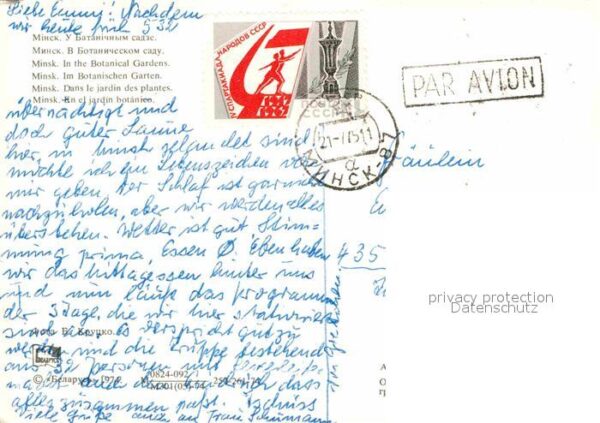 Liebe Emmy! Nachdem
wir heute früh 5 32
Мінск. У Батанічным садзе.
Минск. В Ботаническом саду.
Minsk. In the Botanical Gardens.
Minsk. Im Botanischen Garten.
Minsk. Dans le jardin des plantes.
Minsk. En el jardín botánico.
übernächtigt und
doch guter Laune
hier, in Minsk gelandet sind
möchte ich ein Lebenszeichen von
mir geben. Der Schlaf ist gar nicht
nachzuholen, aber wir werden alles
überstehen. Wetter ist gut Stim-
mung prima, Essen Ø. Eben haben
wir das Mittagessen hinter uns
und nun läuft das Programm
der 3 Tage, die wir hier
sind an. Es verspricht gut zu
werden und die Gruppe bestehend
aus 32 Personen
macht
alles zusammen paßt. Tschüss
viele Grüße auch an Frau
V СПАРТАКИАДА НАРОДОВ СССР
1917
1967
ПОЧТА
СССР
21-7 75 11
МИНСК-87
PAR AVION
Fräulein
435
privacy protection
Datenschutz
Фото В. Крупко.
© «Беларусь» 1974
0824-092